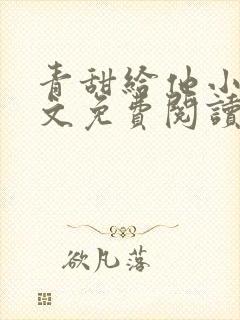 青甜給他小
文免費閱讀
欲凡落